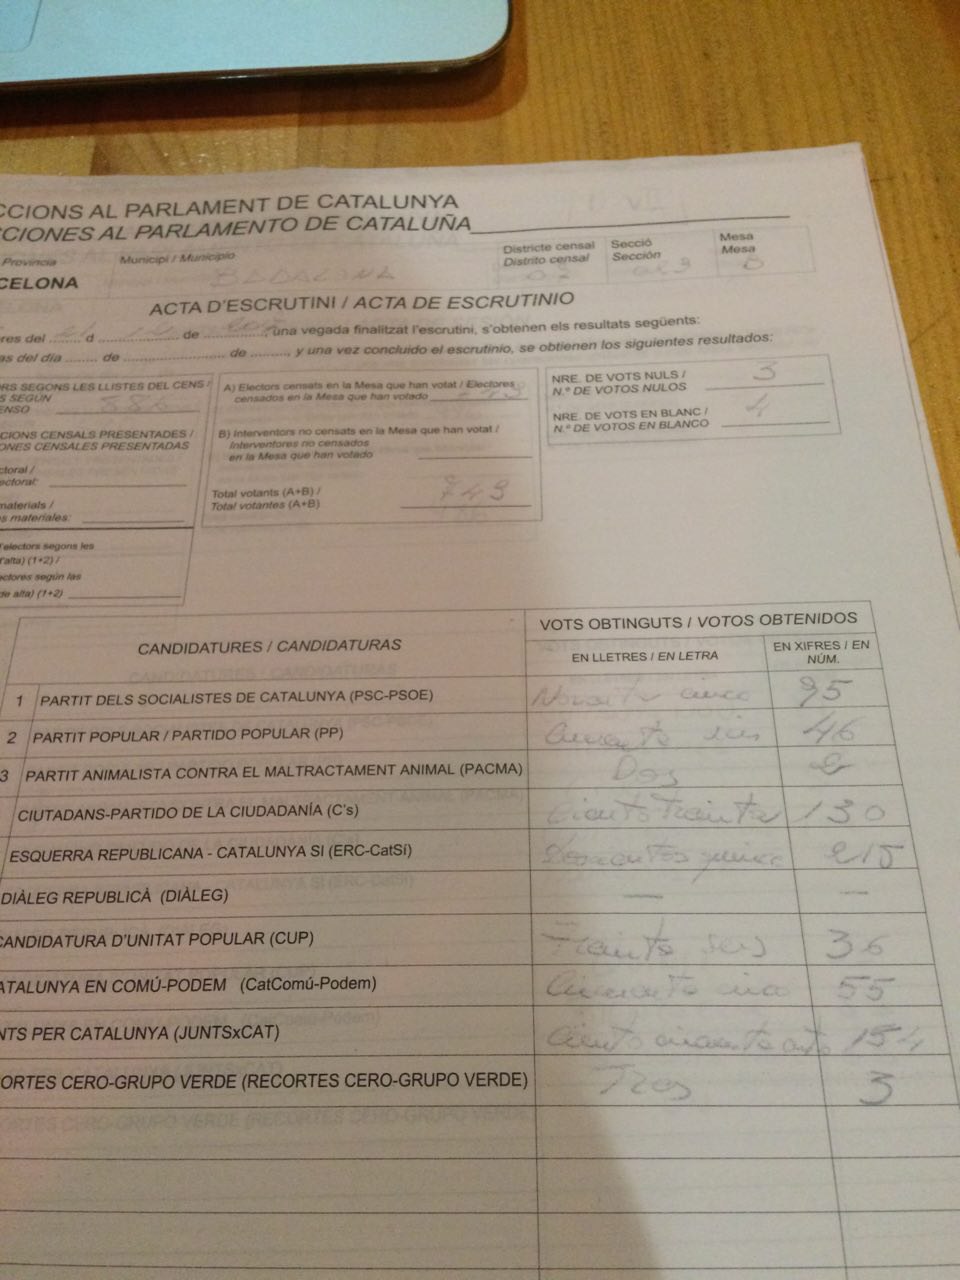 CCIONS AL PARLAMENT DE CATALUNYA
CCIONES AL PARLAMENTO DE CATALUÑA
Provincia
CELONA
Municipi / Municipio
BADALONA
Districte censal
Distrito censal
02
Secció
Sección
Mesa
Mesa
B
ACTA D'ESCRUTINI / ACTA DE ESCRUTINIO
res del 21 d de una vegada finalitzat l'escrutini, s'obtenen els resultats següents:
as del día ....... de .......................... de ........, y una vez concluido el escrutinio, se obtienen los siguientes resultados:
RS SEGONS LES LLISTES DEL CENS /
S SEGÚN
ENSO
CIONS CENSALS PRESENTADES /
ONES CENSALES PRESENTADAS
ctoral /
ectoral:
materials /
s materiales:
'electors segons les
'alta) (1+2) /
ectores según las
de alta) (1+2)
A) Electors censats en la Mesa que han votat / Electores
censados en la Mesa que han votado
B) Interventors no censats en la Mesa que han votat /
Interventores no censados
en la Mesa que han votado
Total votants (A+B) /
Total votantes (A+B)
743
NRE. DE VOTS NULS /
N.º DE VOTOS NULOS
3
NRE. DE VOTS EN BLANC /
N.º DE VOTOS EN BLANCO
4
CANDIDATURES / CANDIDATURAS
VOTS OBTINGUTS / VOTOS OBTENIDOS
EN LLETRES / EN LETRA
EN XIFRES / EN
NÚM.
1 PARTIT DELS SOCIALISTES DE CATALUNYA (PSC-PSOE) Noventa cinco 95
2 PARTIT POPULAR / PARTIDO POPULAR (PP) 46
3 PARTIT ANIMALISTA CONTRA EL MALTRACTAMENT ANIMAL (PACMA) Dos 2
CIUTADANS-PARTIDO DE LA CIUDADANÍA (C's) Ciento treinta 130
ESQUERRA REPUBLICANA - CATALUNYA SI (ERC-CatSí) Doscientos quince 215
DIÀLEG REPUBLICÀ (DIÀLEG) — —
CANDIDATURA D'UNITAT POPULAR (CUP) Treinta seis 36
ATALUNYA EN COMÚ-PODEM (CatComú-Podem) 55
NTS PER CATALUNYA (JUNTSxCAT) Ciento 154
ORTES CERO-GRUPO VERDE (RECORTES CERO-GRUPO VERDE) Tres 3